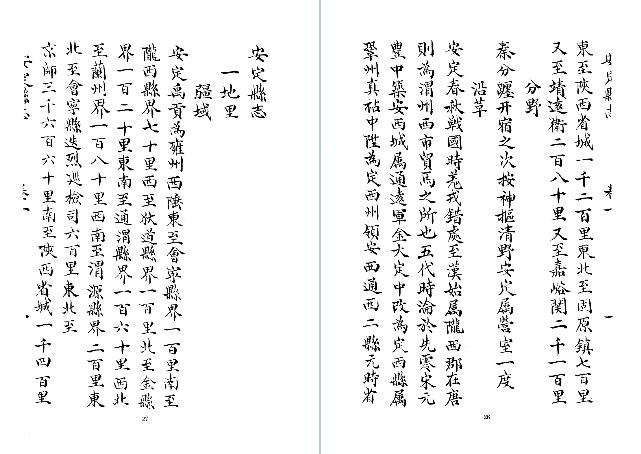 安定縣志
一地里
疆域
安定禹貢為雍州西陲東至會寧縣界一百里南至
隴西縣界七十里西至狄道縣界一百里北至金縣
界一百二十里東南至通渭縣界一百六十里西北
至蘭州界一百八十里西南至渭源縣界二百里東
北至會寧縣迭烈巡檢司六百里東北至
京師三千六百六十里南至陝西省城一千四百里
安定縣志 卷一
27
安定縣志 卷一 一
東至陝西省城一千二百里東北至固原鎮七百里
又至靖遠衛二百八十里又至嘉峪關二千一百里
分野
秦分躔井宿之次按神樞清野安定屬營室一度
沿革
安定春秋戰國時羌戎錯處至漢始屬隴西郡在唐
則為渭州西市貿馬之所也五代時淪於先零宋元
豐中築安西城屬通遠軍金大定中改為定西縣屬
鞏州真祐中陞為定西州領安西通西二縣元時省
28